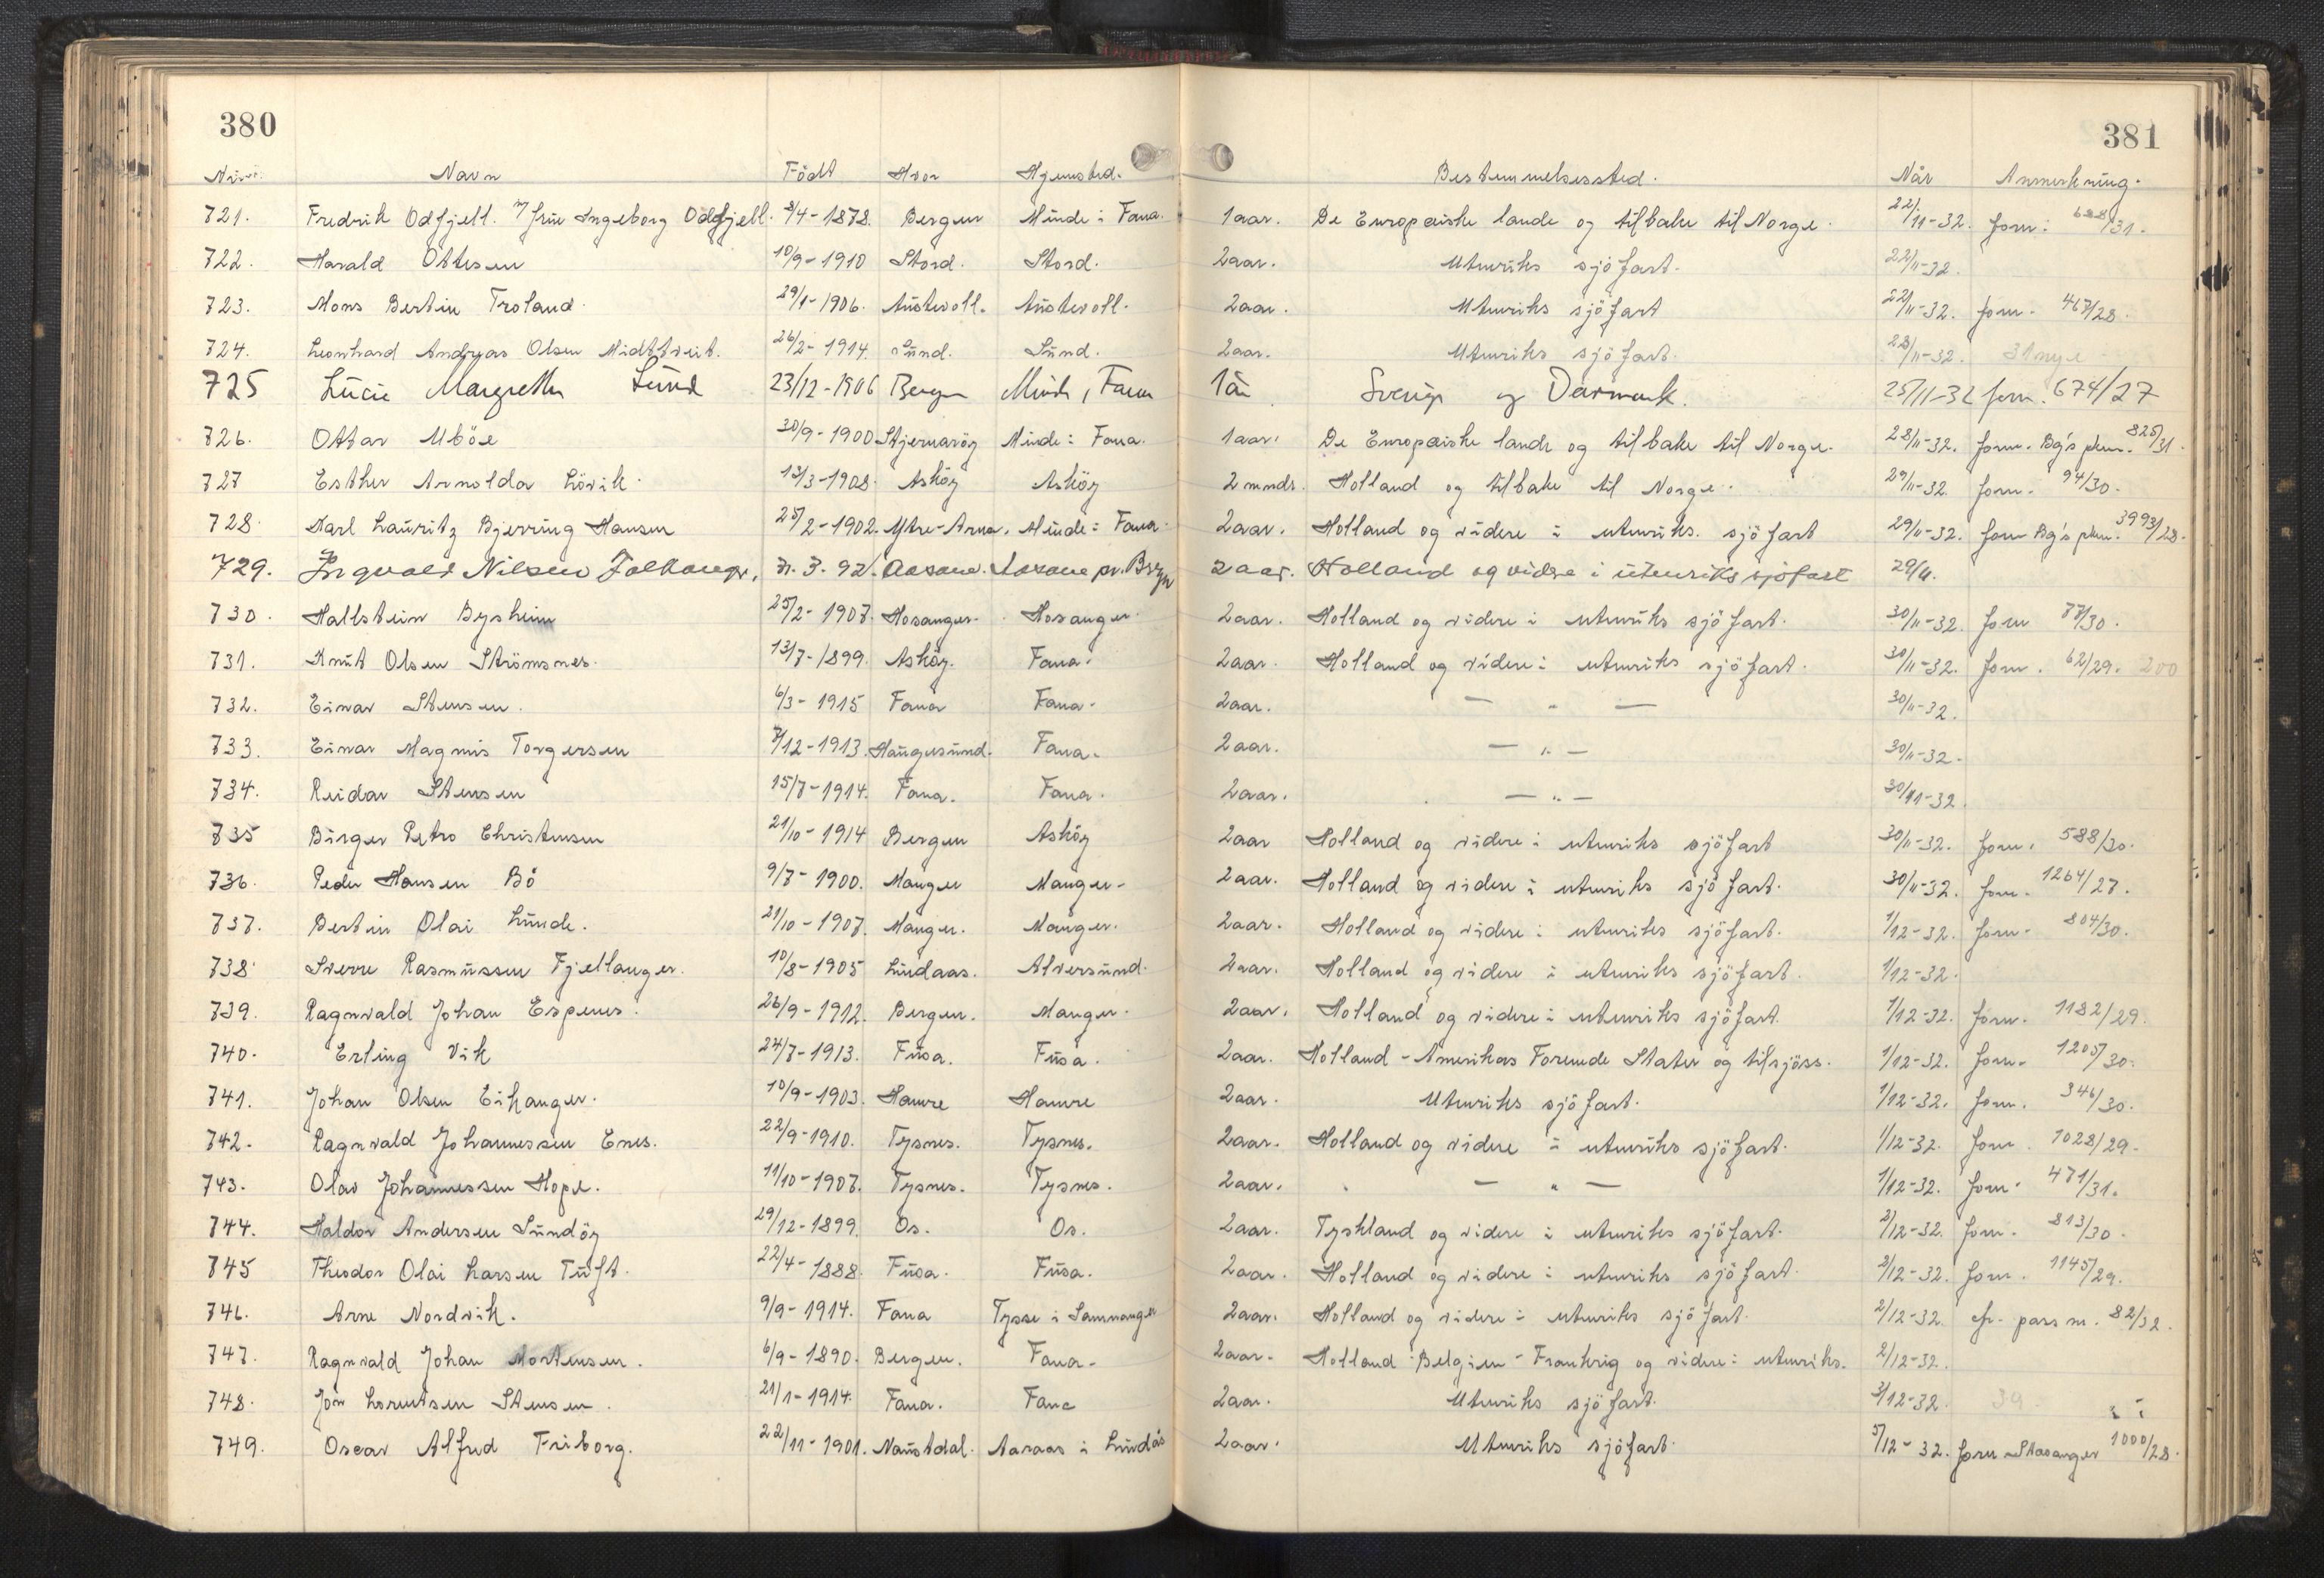 380
381
Navn Födt Hvor Hjemsted. Bestemmelsessted. Når Anmerkning.
721. Fredrik Odfjell. m/frue Ingeborg Odfjell. 8/4-1878. Bergen Minde i Fana. 1 aar. De Europæiske lande og tilbake til Norge. 22/11-32. forn: 688/31.
722. Harald Ottesen 10/9-1910 Stord. Stord. 2 aar. Utenriks sjöfart. 22/11-32.
723. Mons Bertin Troland 29/1-1906. Austevoll. Austevoll. 2 aar. Utenriks sjöfart 22/11-32. forn. 467/28.
724. Leonhard Andreas Olsen Midttveit. 26/2-1914. Sund. Sund. 2 aar. Utenriks sjöfart. 23/11-32.
725 Lucie Margrethe Lund 23/12-1906 Bergen Minde, Fana 1 år Sverige og Danmark. 25/11-32 forn. 674/27
726. Ottar Uböe 30/9-1900 Stjernaröy Minde i Fana. 1 aar. De Europæiske lande og tilbake til Norge. 28/11-32. forn. Bg's pkm. 825/31.
727 Esther Arnolda Lövik. 13/3-1908. Asköy Asköy 2 mnds. Holland og tilbake til Norge. 29/11-32. forn. 94/30.
728. Karl Lauritz Bjerring Hansen 25/2-1902. Ytre-Arna. Minde i Fana. 2 aar. Holland og videre i utenriks. sjöfart 29/11-32. forn Bg's pkm. 3993/28.
729. Ingvald Nilsen Tollanger, 31.3.92. Aasane. Aasane pr. Bergen 2 aar. Holland og videre i utenriks sjöfart 29/11.
730. Hallstein Bysheim 25/2-1907. Hosanger. Hosanger. 2 aar. Holland og videre i utenriks sjöfart. 30/11-32. forn 77/30.
731. Knut Olsen Strömsnes. 13/7-1899. Asköy. Fana. 2 aar. Holland og videre i utenriks sjöfart. 30/11-32. forn. 62/29. 200
732. Einar Stensen. 6/3-1915 Fana Fana. 2 aar. — " — 30/11-32.
733. Einar Magnus Torgersen 7/12-1913. Haugesund. Fana. 2 aar. — " — 30/11-32.
734. Reidar Stensen 15/7-1914. Fana. Fana. 2 aar. — " — 30/11-32.
735 Birger Petro Christensen 21/10-1914 Bergen Asköy 2 aar Holland og videre i utenriks sjöfart 30/11-32. forn. 588/30.
736. Peder Hansen Bö 9/7-1900. Manger Manger. 2 aar. Holland og videre i utenriks sjöfart. 30/11-32. forn. 1264/27.
737. Bertin Olai Lunde. 21/10-1907. Manger. Manger. 2 aar. Holland og videre i utenriks sjöfart. 1/12-32. forn. 804/30.
738 Sverre Rasmussen Fjellanger. 10/8-1905 Lindaas. Alversund. 2 aar. Holland og videre i utenriks sjöfart. 1/12-32.
739. Ragnvald Johan Espenes. 26/9-1912. Bergen. Manger. 2 aar. Holland og videre i utenriks sjöfart. 1/12-32. forn. 1182/29.
740. Erling Vik 24/7-1913. Fusa. Fusa. 2 aar. Holland - Amerikas Forenede Stater og tilsjöss. 1/12-32. forn. 1205/30.
741. Johan Olsen Eikanger. 10/9-1903. Hamre Hamre 2 aar. Utenriks sjöfart. 1/12-32. forn. 346/30.
742. Ragnvald Johannessen Enes. 22/9-1910. Tysnes. Tysnes. 2 aar. Holland og videre i utenriks sjöfart. 1/12-32. forn. 1028/29.
743. Olav Johannessen Hope. 11/10-1907. Tysnes. Tysnes. 2 aar. — " — 1/12-32. forn. 471/31.
744. Haldor Andersen Sundöy 29/12-1899. Os. Os. 2 aar. Tyskland og videre i utenriks sjöfart. 2/12-32. forn. 813/30.
745 Theodor Olai Larsen Tuft. 22/4-1888. Fusa. Fusa. 2 aar. Holland og videre i utenriks sjöfart. 2/12-32. forn. 1145/29.
746. Arne Nordvik. 9/9-1914. Fana Tysse i Samnanger 2 aar. Holland og videre i utenriks sjöfart. 2/12-32. cfr. pass nr. 82/32.
747. Ragnvald Johan Mortensen. 6/9-1890. Bergen. Fana. 2 aar. Holland-Belgien-Frankrig og videre i utenriks. 2/12-32.
748. Jon Lorentsen Stensen. 21/1-1914. Fana. Fana 2 aar. Utenriks sjöfart. 3/12-32. 39
749. Oscar Alfred Friborg. 22/11-1901. Naustdal. Aaraas i Lindås 2 aar. Utenriks sjöfart. 5/12-32. forn Stavanger 1000/28.